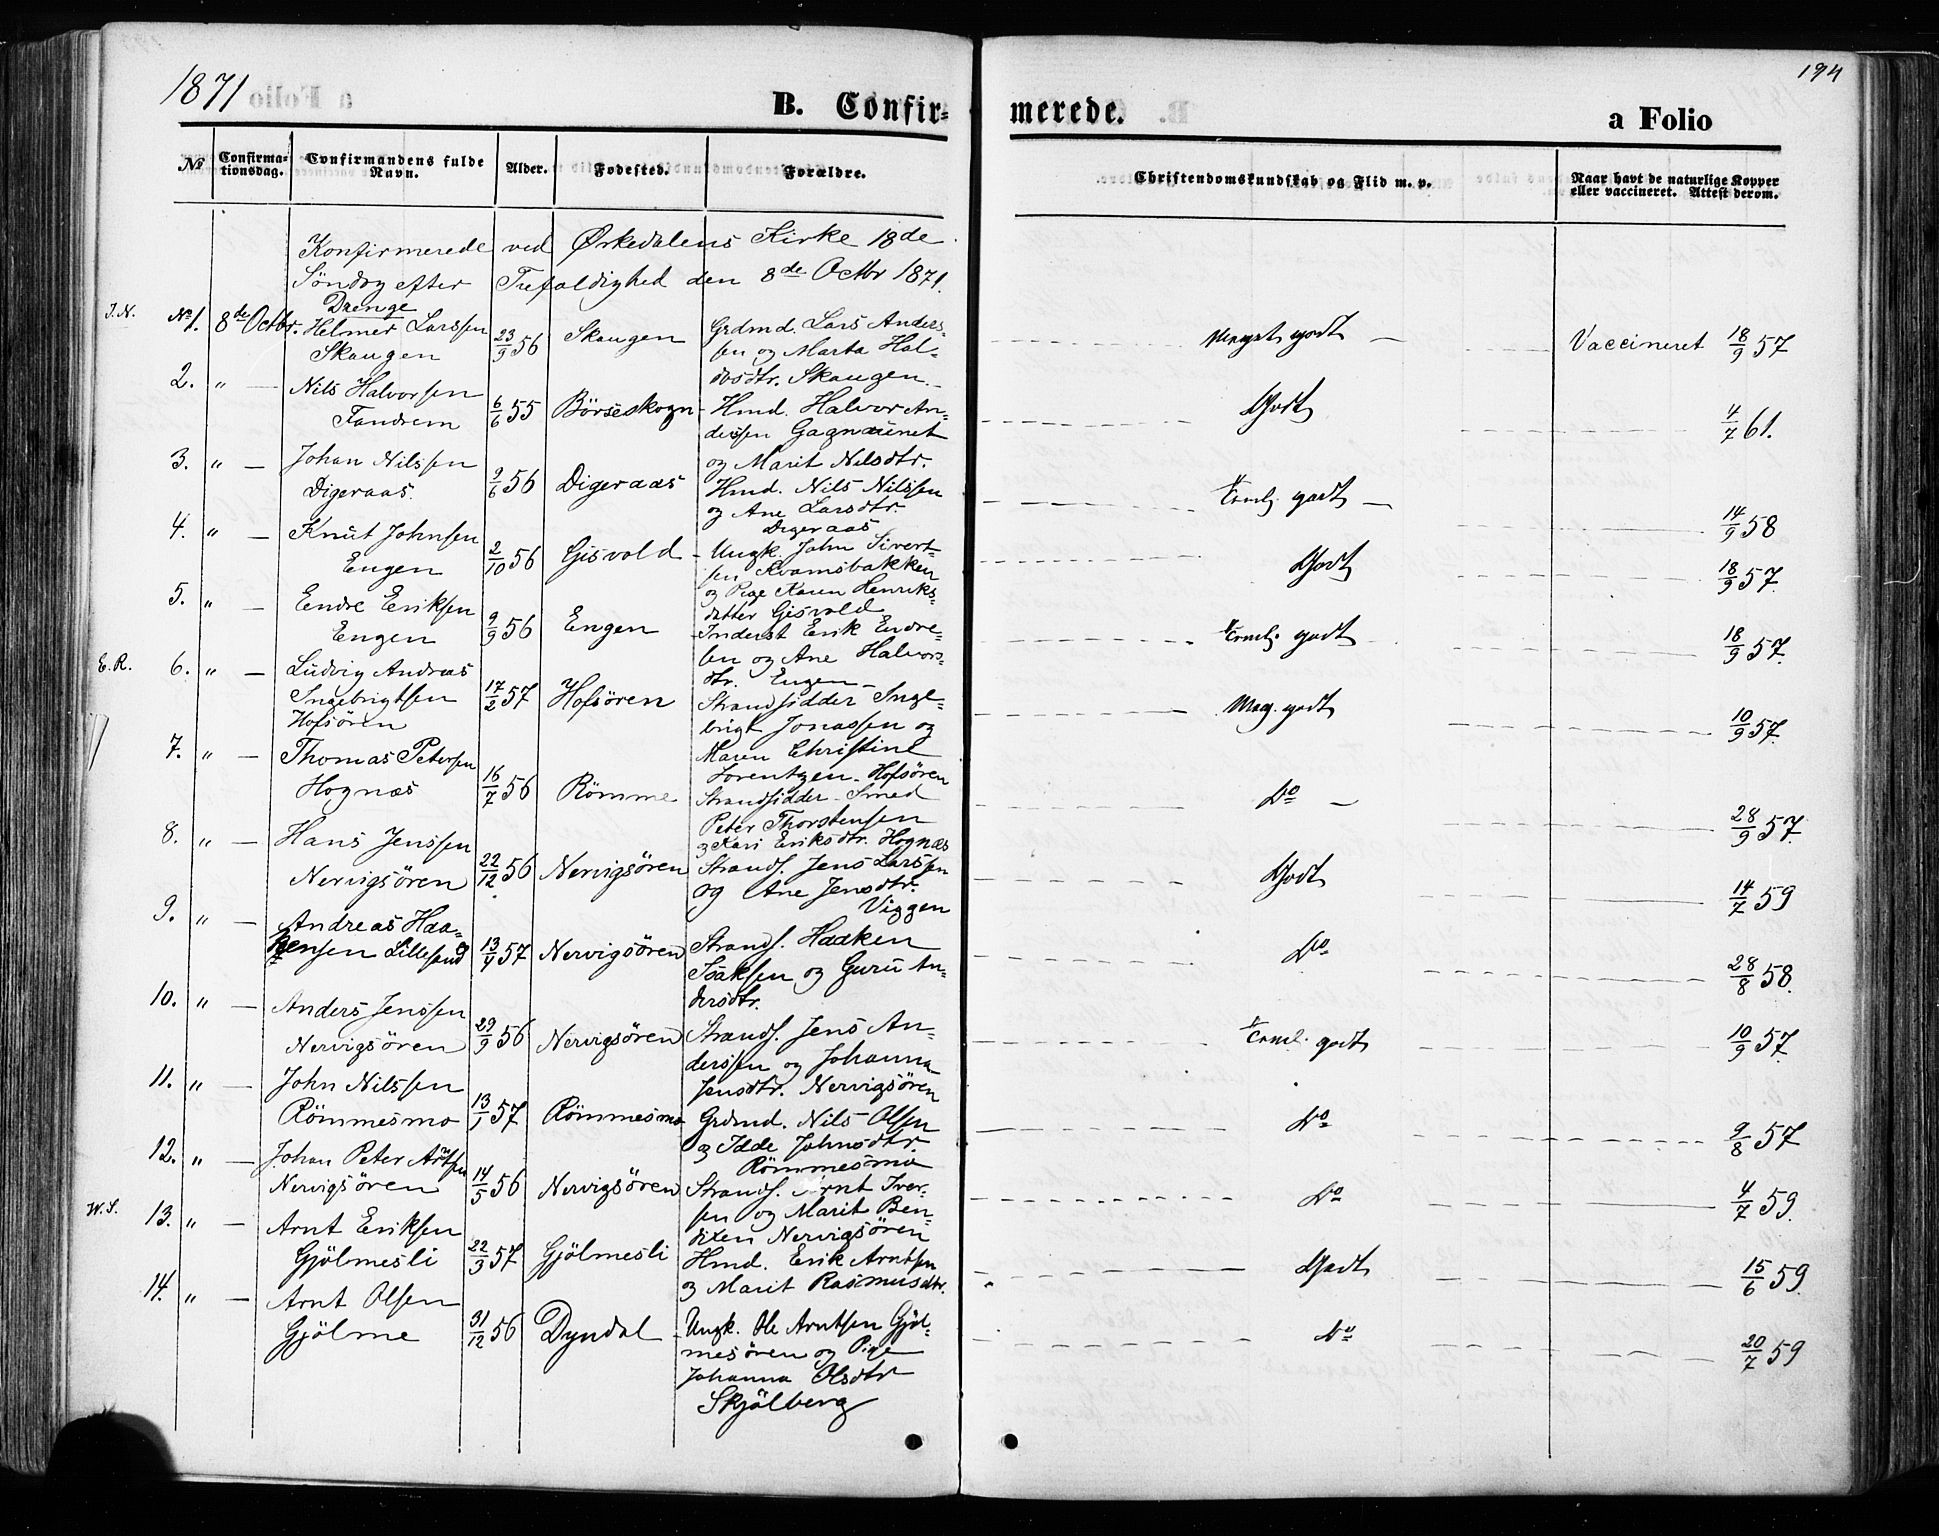 1871
194
B. Confirmerede.
a Folio
№
Confirmationsdag.
Confirmandens fulde Navn.
Alder.
Fødested.
Forældre.
Christendomskundskab og Flid m. v.
Naar havt de naturlige Kopper eller vaccineret. Attest derom.
Konfirmerede ved Ørkedalens Kirke 18de
Söndag efter Trefoldighed den 8de Octbr 1871.
Drenge
J.N. № 1. 8de Octbr. Helmer Larssen 23/9 56 Skaugen Grdmd. Lars Anders- Meget godt — Vaccineret 18/9 57
Skaugen sen og Marta Hal-
vosdtr. Skaugen.
2. " — Nils Halvorsen 6/6 55 Börseskogn Hmd. Halvor An- Godt 4/7 61.
Fandrem dersen Gagnaunet
og Marit Nilsdtr.
3. " — Johan Nilssen 9/6 56 Digeraas Hmd. Nils Nilssen Teml. godt — 14/9 58
Digeraas. og Ane Larsdtr.
Digeraas
4. " — Knut Johnsen 2/10 56 Gisvold Ungk. John Sivert- Godt 18/9 57.
Engen sen Kvamsbakken
og Pige Karen Henriks-
datter Gisvold
5. " — Endre Eriksen 9/9 56 Engen Inderst Erik Endre- Teml. godt 18/9 57.
Engen sen og Ane Halvors-
dtr. Engen
E.R. 6. " — Ludvig Andreas 17/2 57 Hofsören Strandsidder Inge- Meg. godt 10/9 57.
Ingebrigtsen brigt Jonassen og
Hofsören Maren Christine
Lorentzen Hofsören
7. " — Thomas Petersen 16/7 56 Römme Strandsidder Smed Do — 28/9 57.
Hognæs Peter Thorstensen
og Kari Eriksdtr. Hognæs
8. " — Hans Jenssen 22/12 56 Nervigsören Strands. Jens Larssen Godt 14/7 59
Nervigsören og Ane Jensdtr.
Viggen
9. " — Andreas Haa- 13/4 57 Nervigsören Strands. Haaken Do 28/8 58.
kensen Lillesand Isaksen og Guru An-
dersdtr.
10. " — Anders Jenssen 29/9 56 Nervigsören Strands. Jens An- Teml. godt 10/9 57.
Nervigsören derssen og Johanna
Jensdtr. Nervigsören
11. " — John Nilssen 13/1 57 Römmesmo Grdmd. Nils Olsen Do 9/8 57
Römmesmo og Idde Johnsdtr.
Römmesmo
12. " — Johan Peter Arntsen 14/5 56 Nervigsören Strands. Arnt Iver- Do 4/7 59.
Nervigsören sen og Marit Ben-
dixen Nervigsören
W.S. 13. " — Arnt Eriksen 22/3 57 Gjölmesli Hmd. Erik Arntsen Godt 15/6 59.
Gjölmesli og Marit Rasmusdtr.
14. " — Arnt Olsen 31/12 56 Dyndal Ungk. Ole Arntsen Gjöl- Do 20/7 59
Gjölme mesören og Pige
Johanna Olsdtr
Skjölberg